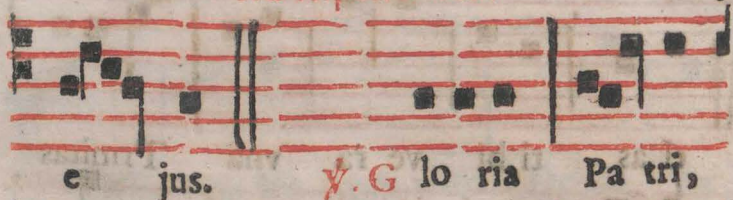 e jus. ℣. G lo ria Pa tri,